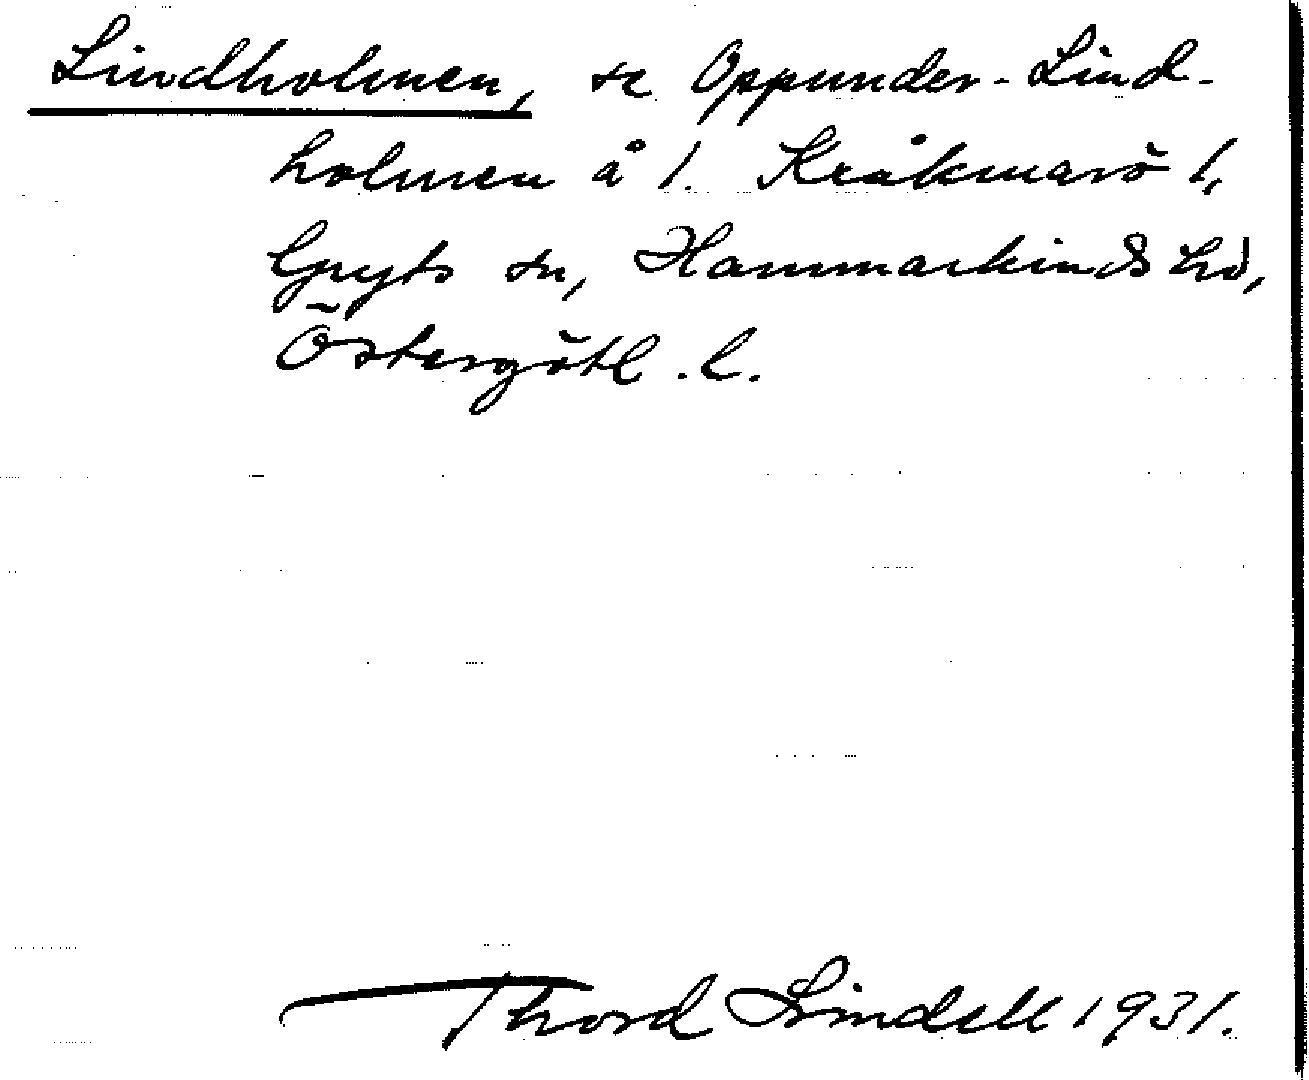 Lindholmen, se Oppunder-Lind-
holmen å 1. Kråkmarö 1,
Gryts sn, Hammarkinds hd,
Östergötl. l.
Thord Lindell 1931.